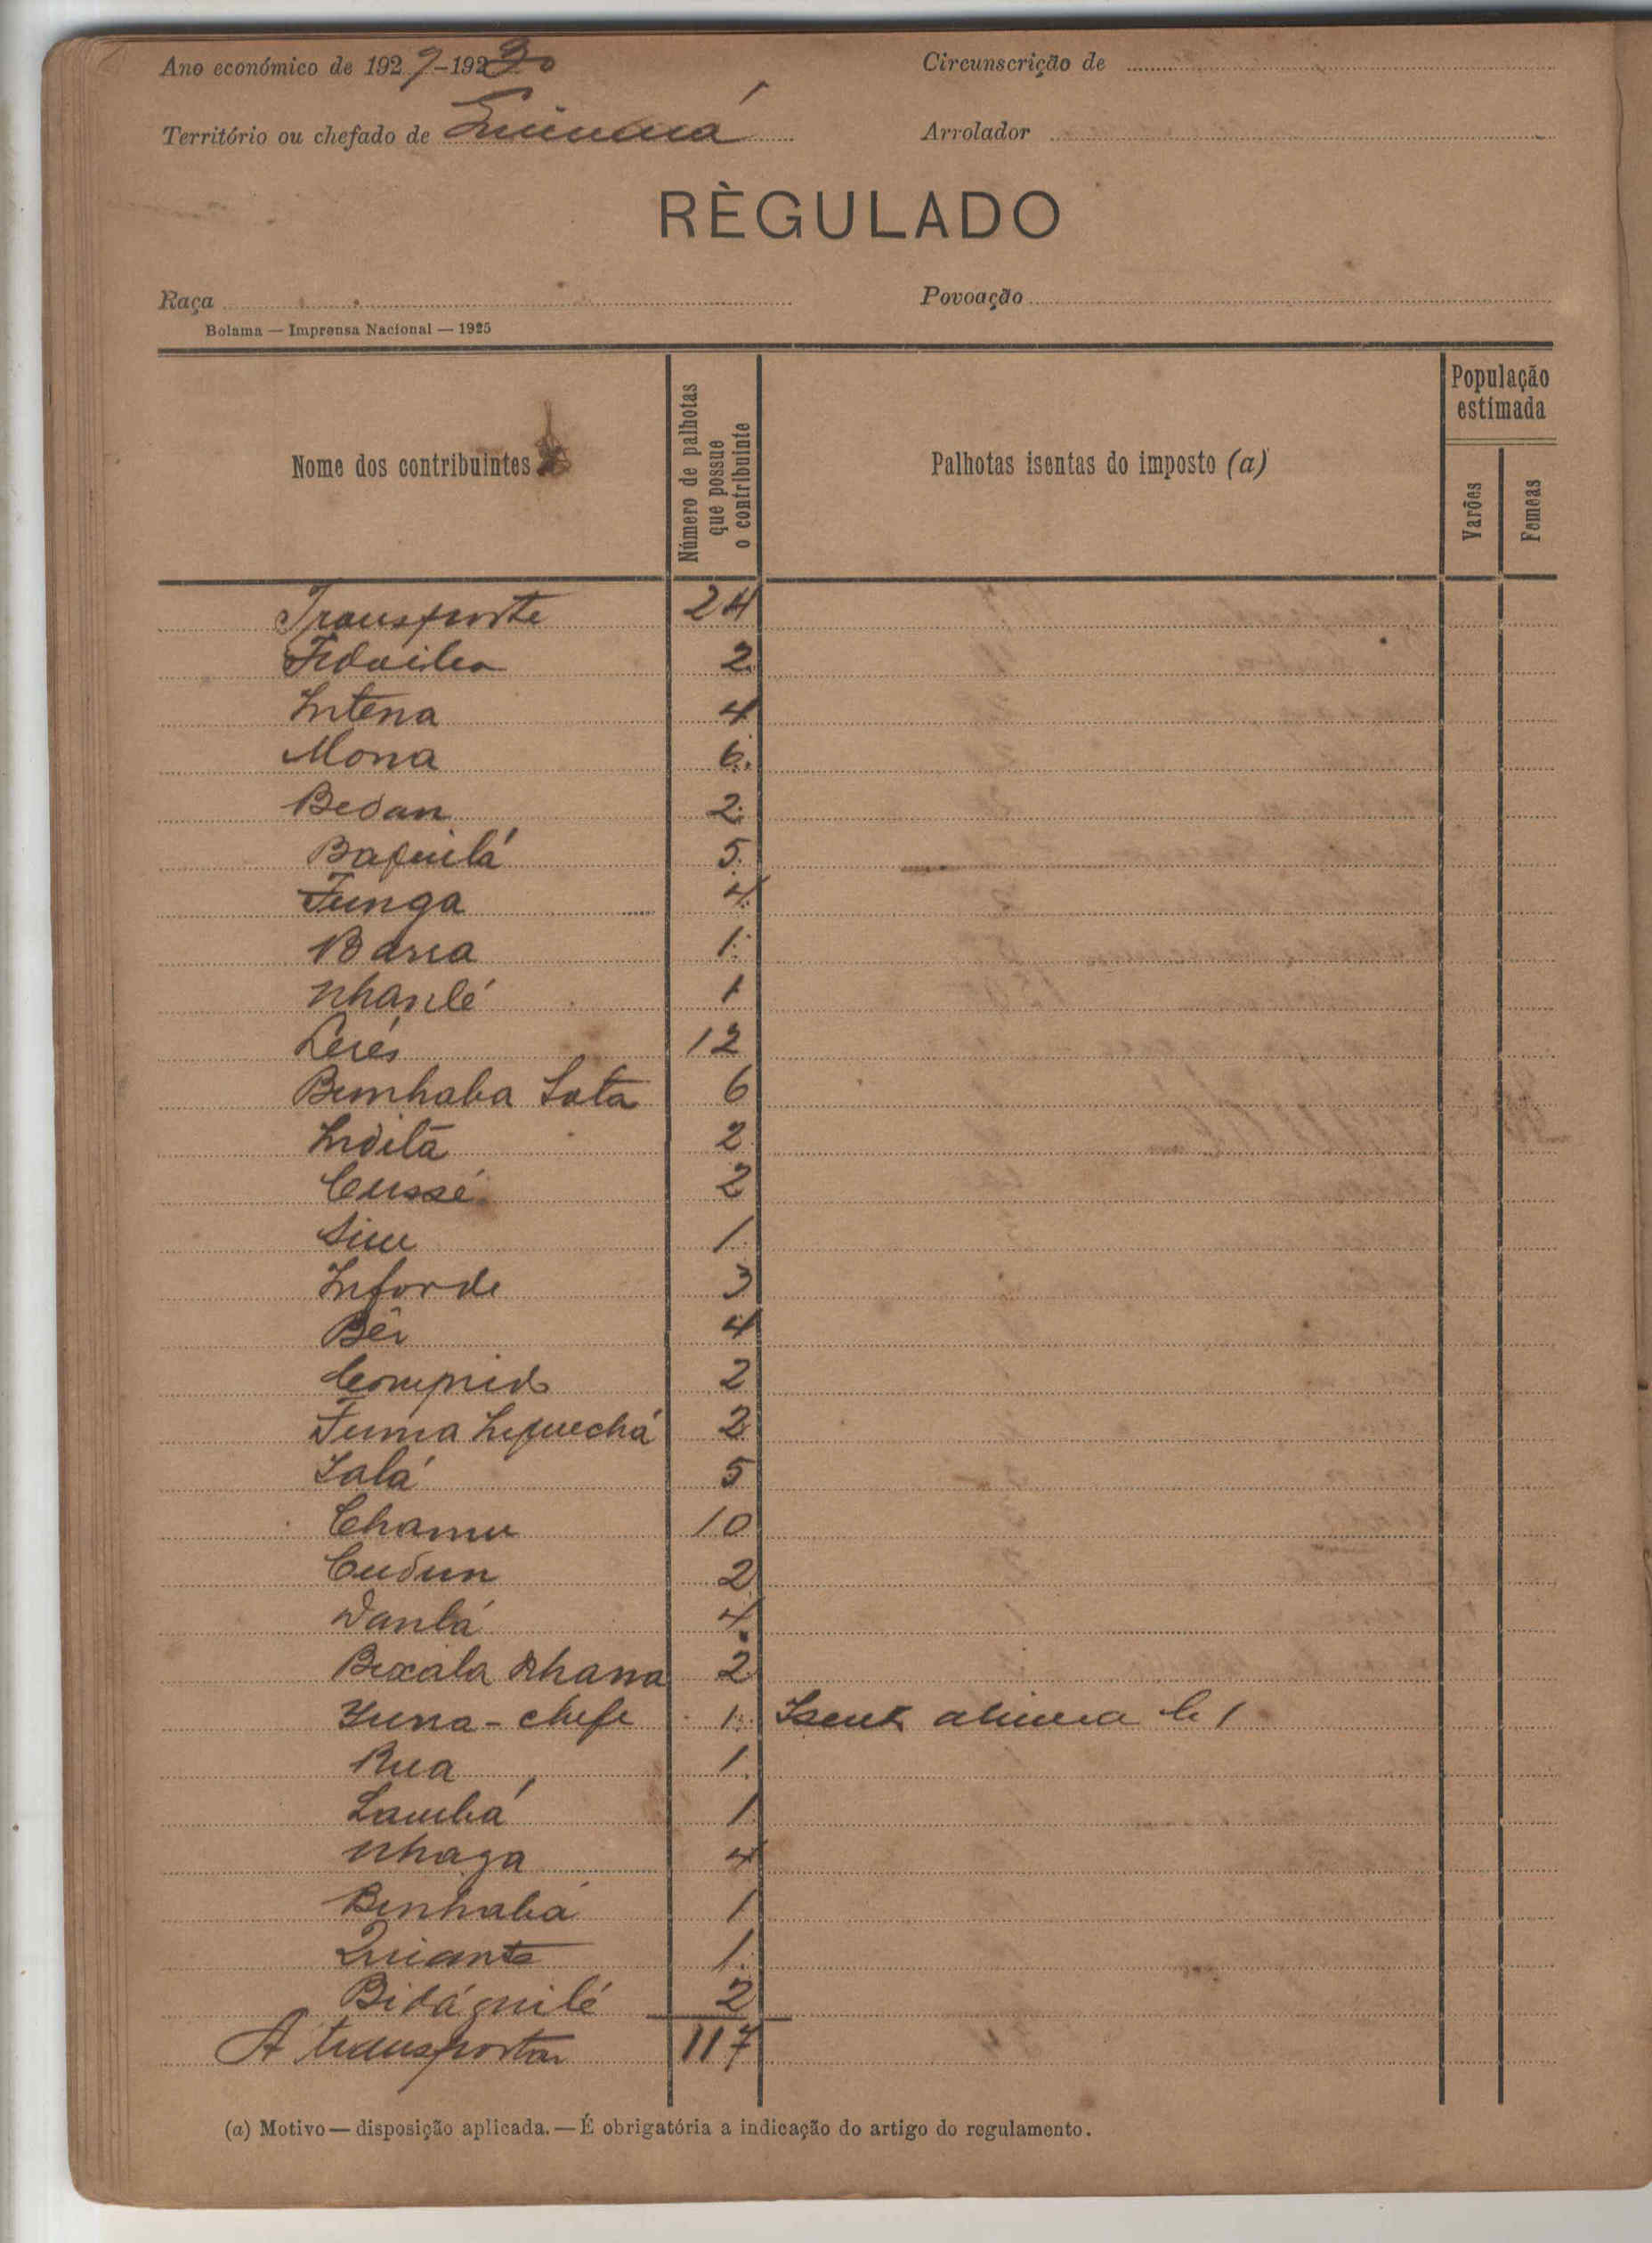 Ano económico de 1929-1930
Circunscrição de
Território ou chefado de
Arrolador
RÈGULADO
Raça
Povoação
Bolama — Imprensa Nacional — 1925
Nome dos contribuintes
Número de palhotas que possue o contribuinte
Palhotas isentas do imposto (a)
População estimada
Varões
Femeas
Transporte 24
2
Intena 4
Mona 6
Bedan 2
Bafuilá 5
Funga 4
Bana 1
Nhanlé 1
12
Bimhaba 6
Indità 2
Cussé 2
Siu 1
Inforde 3
Bêi 4
Comprido 2
Fuma 2
Salá 5
Chamu 10
Cudun 2
Danlá 4
Bixala Nhana 2
Yuna - chefe 1 Isento b 1
Rua 1
Lambá 1
Nhaga 4
Binhabá 1
Quiante 1
Bidáguilé 2
A transportar 117
(a) Motivo — disposição aplicada. — É obrigatória a indicação do artigo do regulamento.